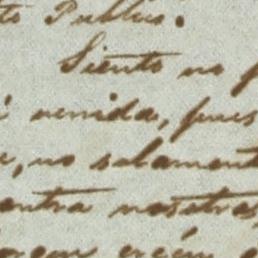 to Publico.
Siento no p
i venida, pues
, no solament
entra nosotros